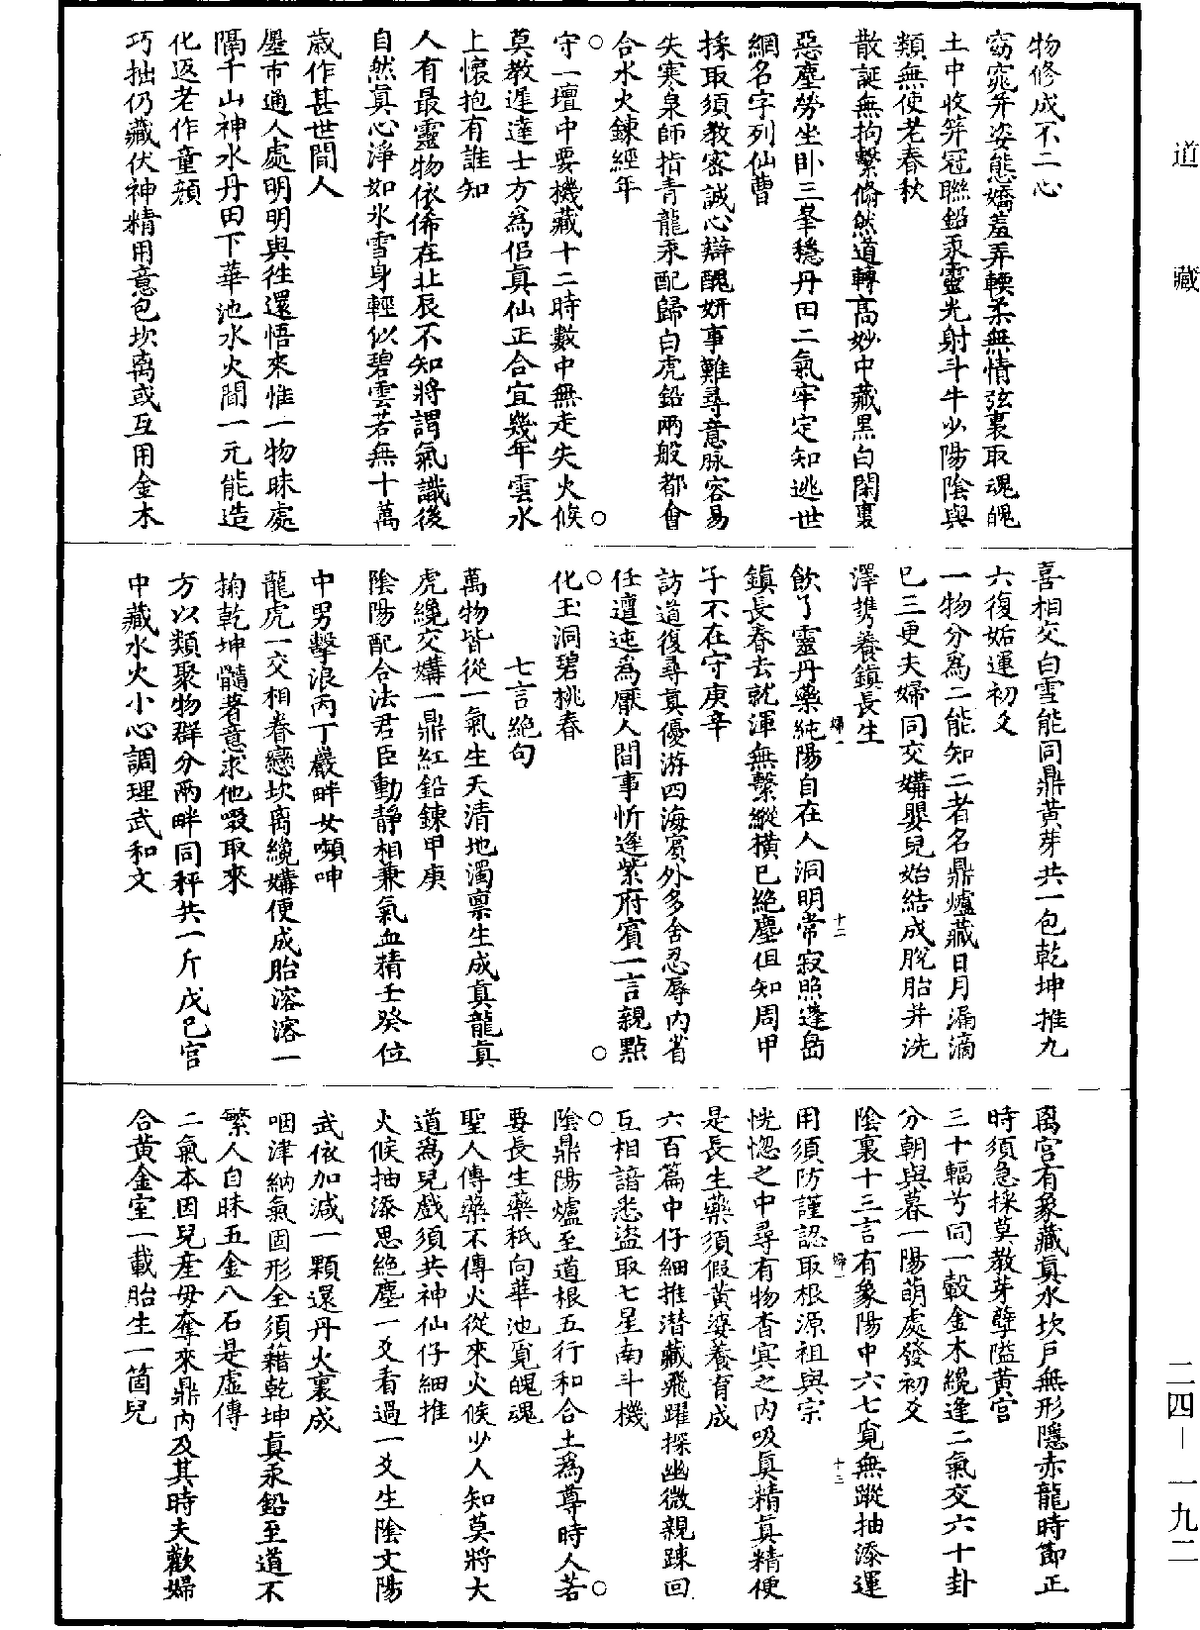 道藏
物修成不二心
窈窕笄姿態嬌羞弄輭柔無情弦裏取魂魄
土中收笄冠聯鉛汞靈光射斗牛少陽陰與
類無使老春秋
散誕無拘繫翛然道轉高妙中藏黑白閑裏
惡塵勞坐卧三峯穩丹田二氣牢定知逃世
網名字列仙曹
採取須教密誠心辯醜妍事難尋意脉容易
失寒泉師指青龍汞配歸白虎鉛兩般都會
合水火鍊經年
○ ○
守一壇中要機藏十二時數中無走失火候
莫教遲達士方爲侣真仙正合宜幾年雲水
上懷抱有誰知
人有最靈物依俙在北辰不知將謂氣識後
自然真心淨如氷雪身輕似碧雲若無十萬
歲作甚世間人
㕓市通人處明明與徃還悟來惟一物昧處
隔千山神水丹田下華池水火間一元能造
化返老作童顔
巧拙仍藏伏神精用意包坎离或互用金木
喜相交白雪能同鼎黄芽共一包乾坤推九
六復姤運初爻
一物分爲二能知二者名鼎爐藏日月漏滴
已三更夫婦同交媾嬰兒始結成脫胎并洗
澤携養鎮長生
婦一 十二
飲了靈丹藥純陽自在人洞明常寂照蓬島
鎮長春去就渾無繫縱横已絶塵但知周甲
子不在守庚辛
訪道復尋真優游四海賓外多舍忍辱内省
任邅迍爲厭人間事忻逢紫府賓一言親點
○ ○
化玉洞碧桃春
七言絶句
萬物皆從一氣生天清地濁禀生成真龍真
虎纔交媾一鼎紅鉛鍊甲庚
陰陽配合法君臣動靜相兼氣血精壬癸位
中男擊浪丙丁巖畔女嚬呻
龍虎一交相眷戀坎离纔媾便成胎溶溶一
掬乾坤髓著意求他啜取來
方以類聚物群分兩畔同秤共一斤戊己宫
中藏水火小心調理武和文
离宫有象藏真水坎戶無形隱赤龍時節正
時須急採莫教芽孽隘黄宫
三十輻兮同一轂金木纔逢二氣交六十卦
分朝與暮一陽萌處發初爻
陰裏十三言有象陽中六七覓無蹤抽添運
婦一 十三
用須防謹認取根源祖與宗
恍惚之中尋有物杳冥之内吸真精真精便
是長生藥須假黄婆養育成
六百篇中仔細推潛藏飛躍探幽微親踈回
互相諳悉盗取七星南斗機
○ ○
陰鼎陽爐至道根五行和合土爲尊時人若
要長生藥秖向華池覓魄魂
聖人傳藥不傳火從來火候少人知莫將大
道爲兒戲須共神仙仔細推
火候抽添思絶塵一爻看過一爻生陰文陽
武依加減一顆還丹火裏成
咽津納氣固形全須藉乾坤真汞鉛至道不
繁人自昧五金八石是虛傳
二氣本因兒產毋奪來鼎内及其時夫歡婦
合黄金室一載胎生一箇兒
二四－一九二